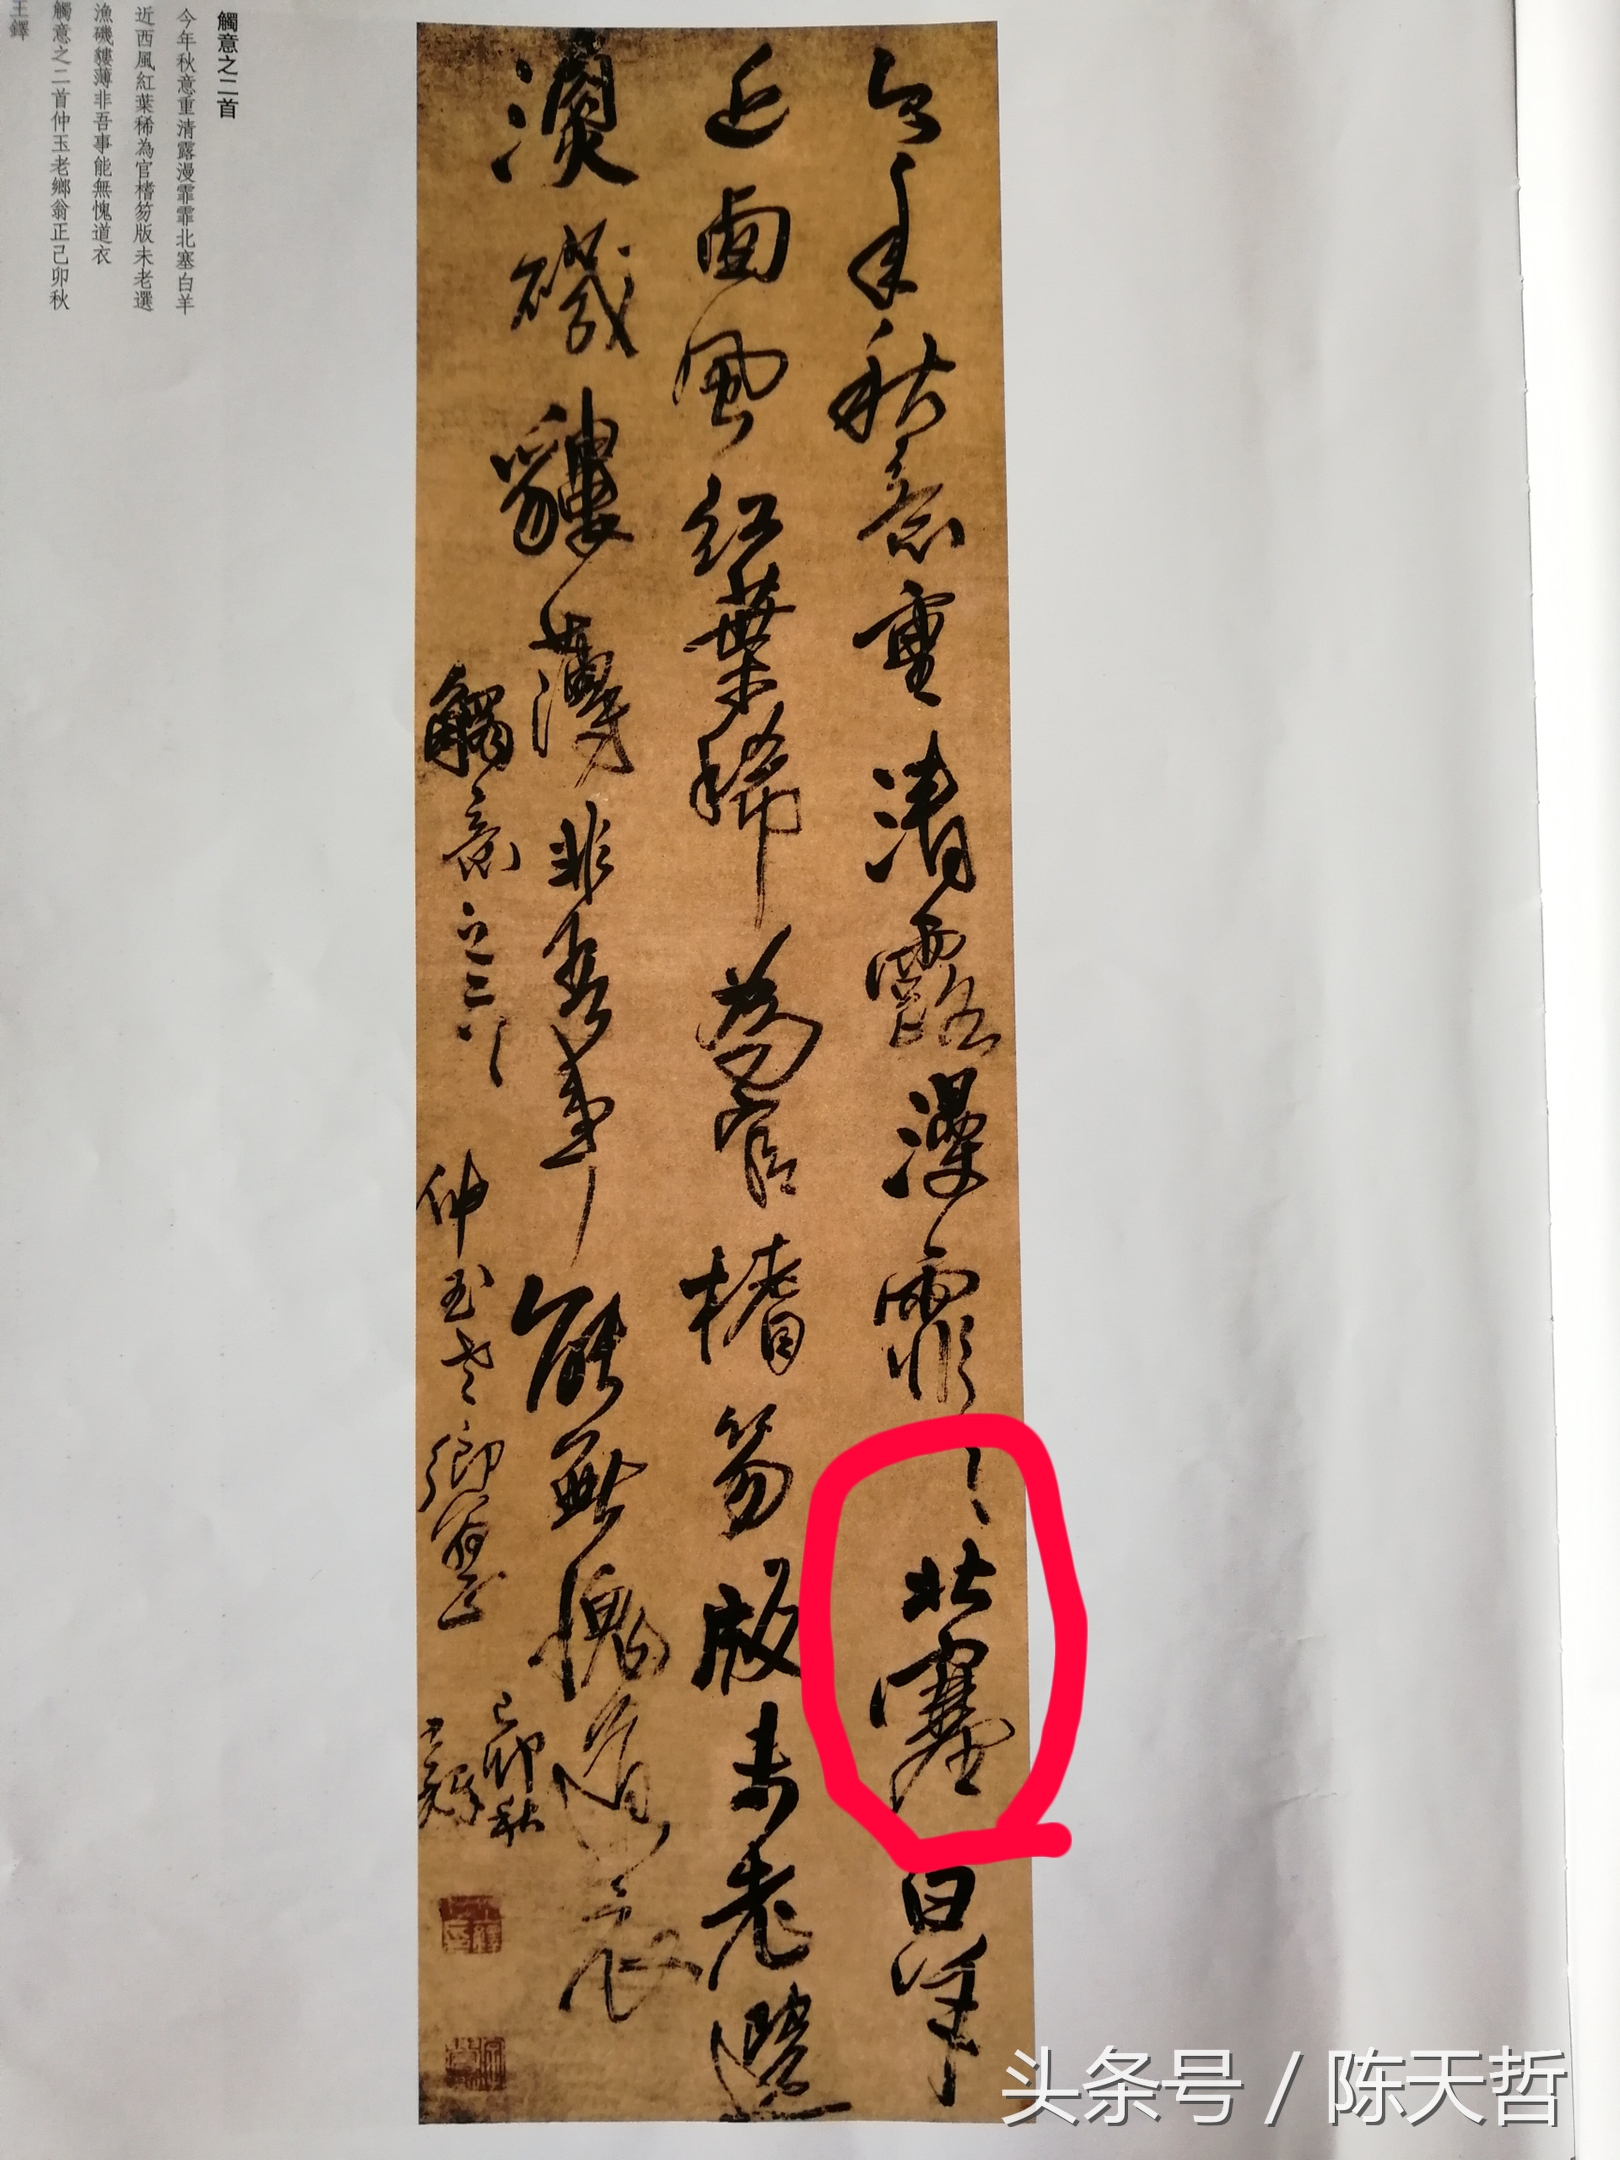 觸意之二首
今年秋意重清露漫霏霏北塞白羊
近西風紅葉稀為官楷笏版未老選
漁磯貗薄非吾事能無愧道衣
觸意之二首仲玉老鄉翁正己卯秋
王鐸
今年秋意重清露漫霏〻北塞白羊
近西風紅葉稀為官楷笏版未老選
漁磯貗薄非吾事能無愧道衣
觸意之二首 仲玉老鄉翁正 己卯秋
王鐸
头条号 / 陈天哲